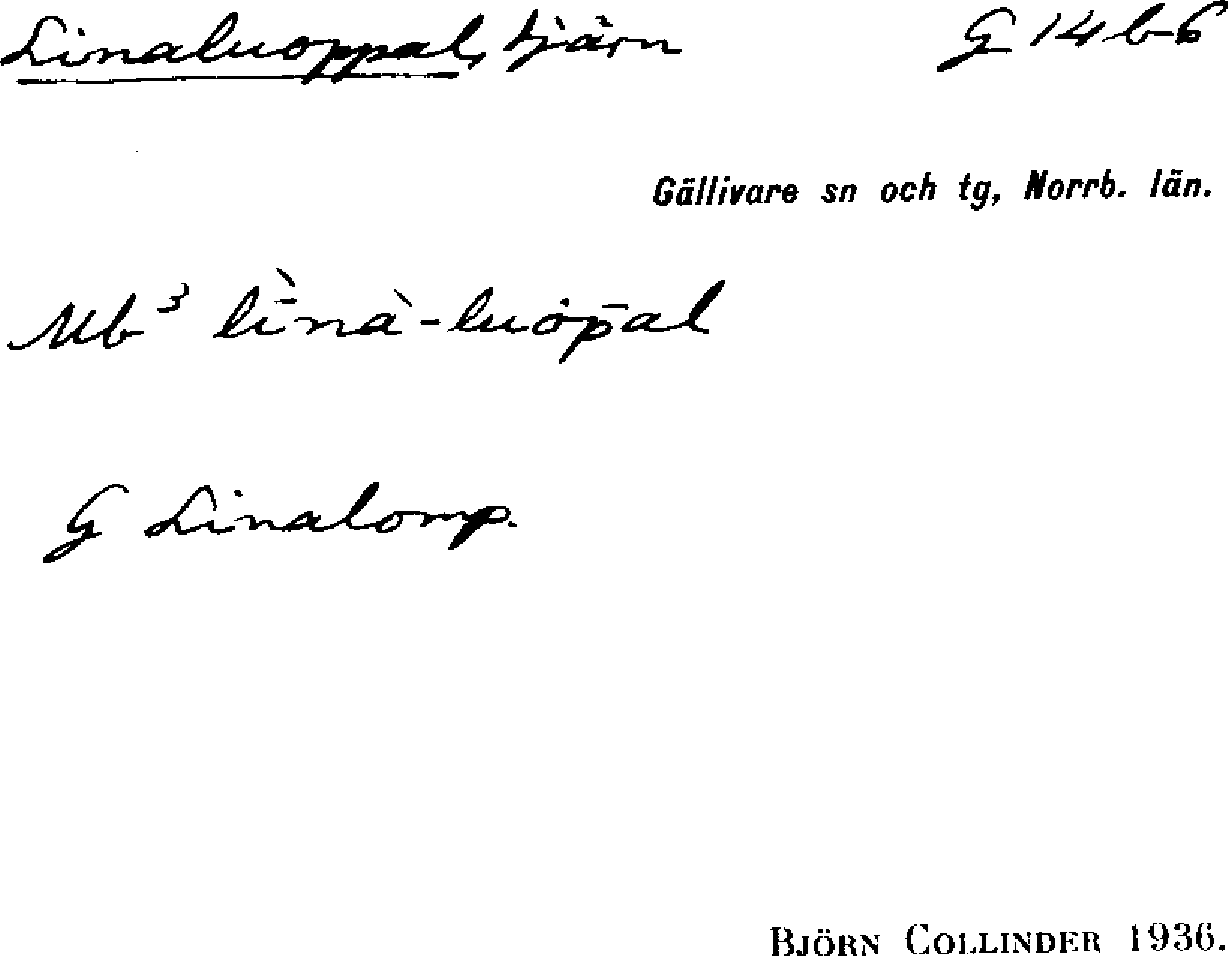 Linaluoppal, tjärn G 14 b 6
Gällivare sn och tg, Norrb. län.
Mb³ lī̀nà-luȯp̄al
G Linalomp.
BJÖRN COLLINDER 1936.